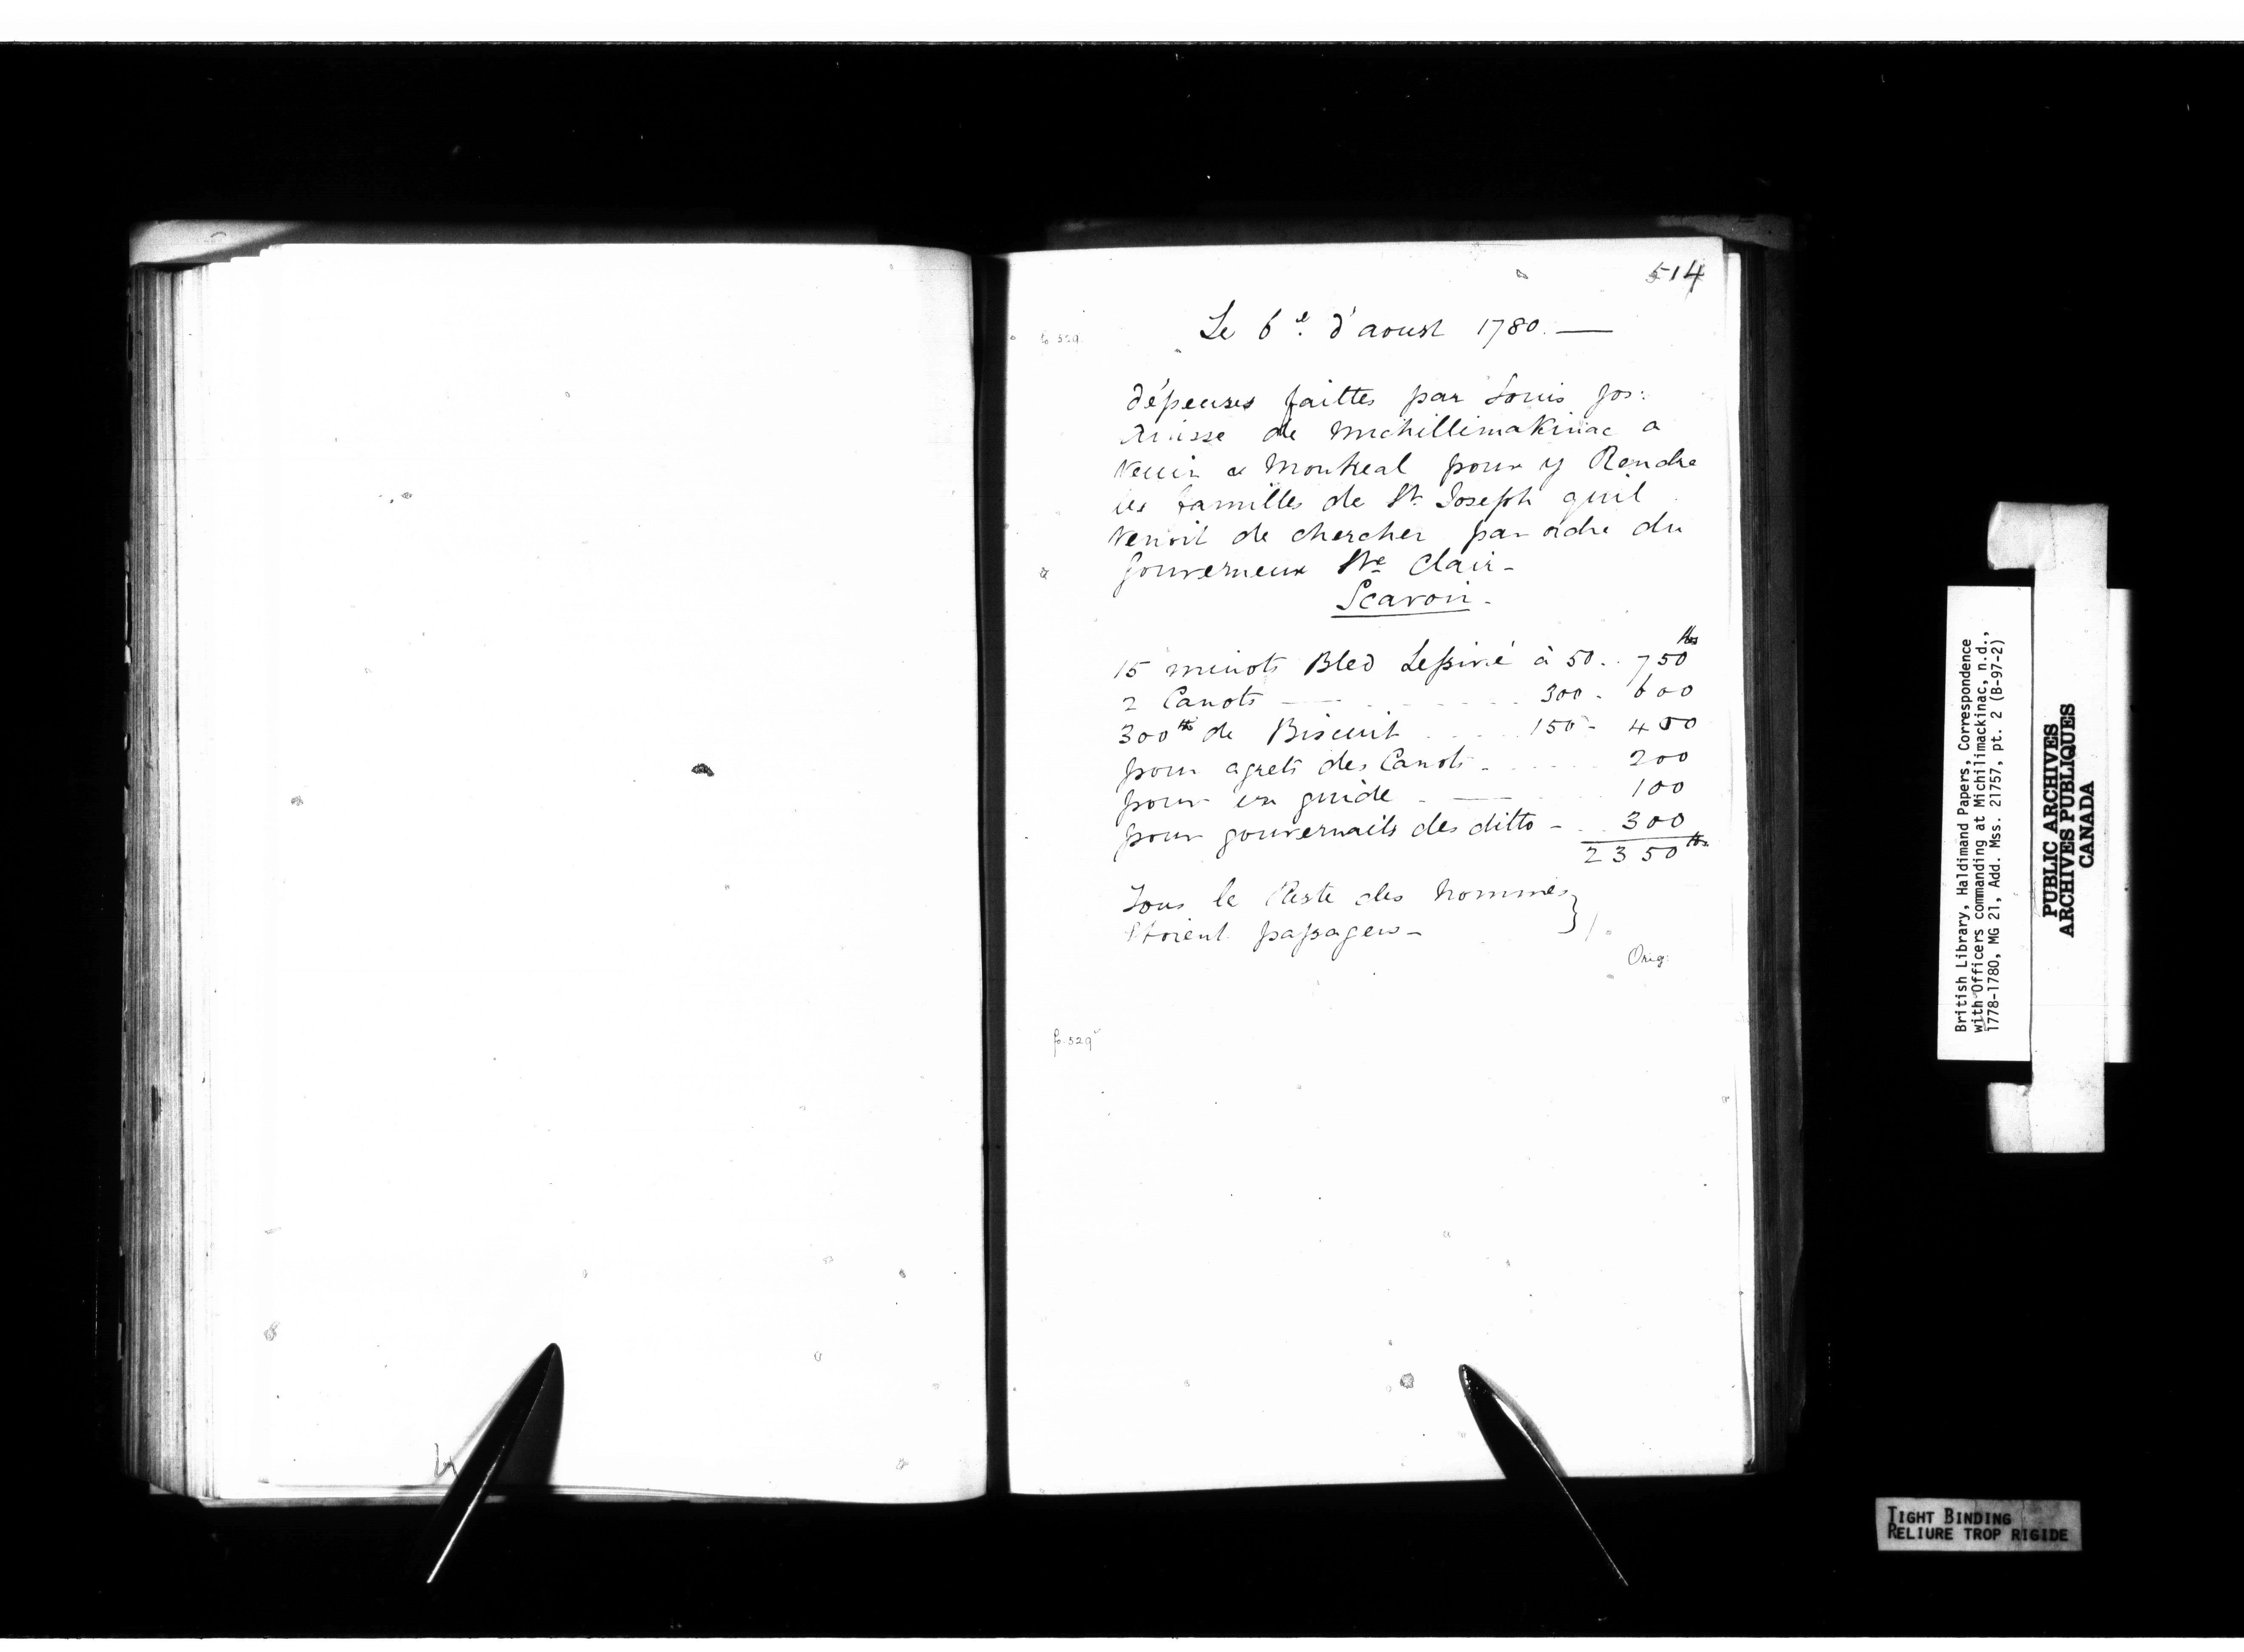 514
fo. 529.
Le 6e. d'aoust 1780. —
dépenses faittes par Louis Jos:
Ainsse de Michillimakinac a
venir a Montreal pour y Rendre
les familles de St. Joseph quil
venoit de chercher par ordre du
gouverneur Ste Clair-
Scavoir.
15 minots Bled Lessivé à 50. . 750 lbs
2 Canots — . . . . . 300 - 600
300 lbs de Biscuit . . . . 150 - 450
pour agrets des Canots - . . . . 200
pour un guide . — . . 100
pour gouvernails des ditto - . . 300
2350 lbs.
Tous le Reste des hommes
Etoient passagers -
Orig:
fo. 529v
British Library, Haldimand Papers, Correspondence
with Officers commanding at Michilimackinac, n.d.,
1778-1780, MG 21, Add. Mss. 21757, pt. 2 (B-97-2)
PUBLIC ARCHIVES
ARCHIVES PUBLIQUES
CANADA
TIGHT BINDING
RELIURE TROP RIGIDE